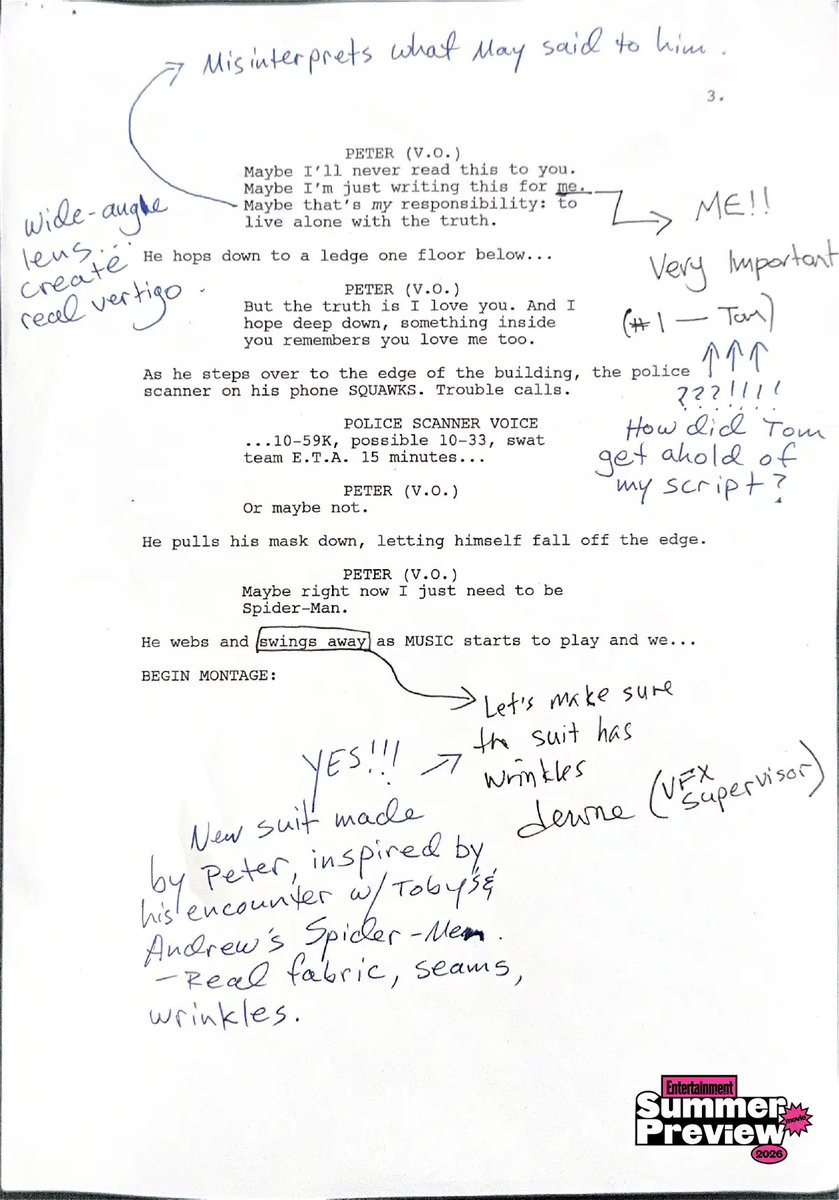 Misinterprets what May said to him.
3.
PETER (V.O.)
Maybe I'll never read this to you.
Maybe I'm just writing this for me.
Maybe that's my responsibility: to
live alone with the truth.
ME!!
Very Important
(#1 — Tom)
???!!!!
How did Tom
get ahold of
my script?
wide-angle
lens...
create
real vertigo.
He hops down to a ledge one floor below...
PETER (V.O.)
But the truth is I love you. And I
hope deep down, something inside
you remembers you love me too.
As he steps over to the edge of the building, the police
scanner on his phone SQUAWKS. Trouble calls.
POLICE SCANNER VOICE
...10-59K, possible 10-33, swat
team E.T.A. 15 minutes...
PETER (V.O.)
Or maybe not.
He pulls his mask down, letting himself fall off the edge.
PETER (V.O.)
Maybe right now I just need to be
Spider-Man.
He webs and swings away as MUSIC starts to play and we...
BEGIN MONTAGE:
Let's make sure
the suit has
wrinkles
(VFX
Supervisor)
YES!!!
New suit made
by Peter, inspired by
his encounter w/ Toby's &
Andrew's Spider-Men.
—Real fabric, seams,
wrinkles.
Entertainment
Summer
movie
Preview
2026